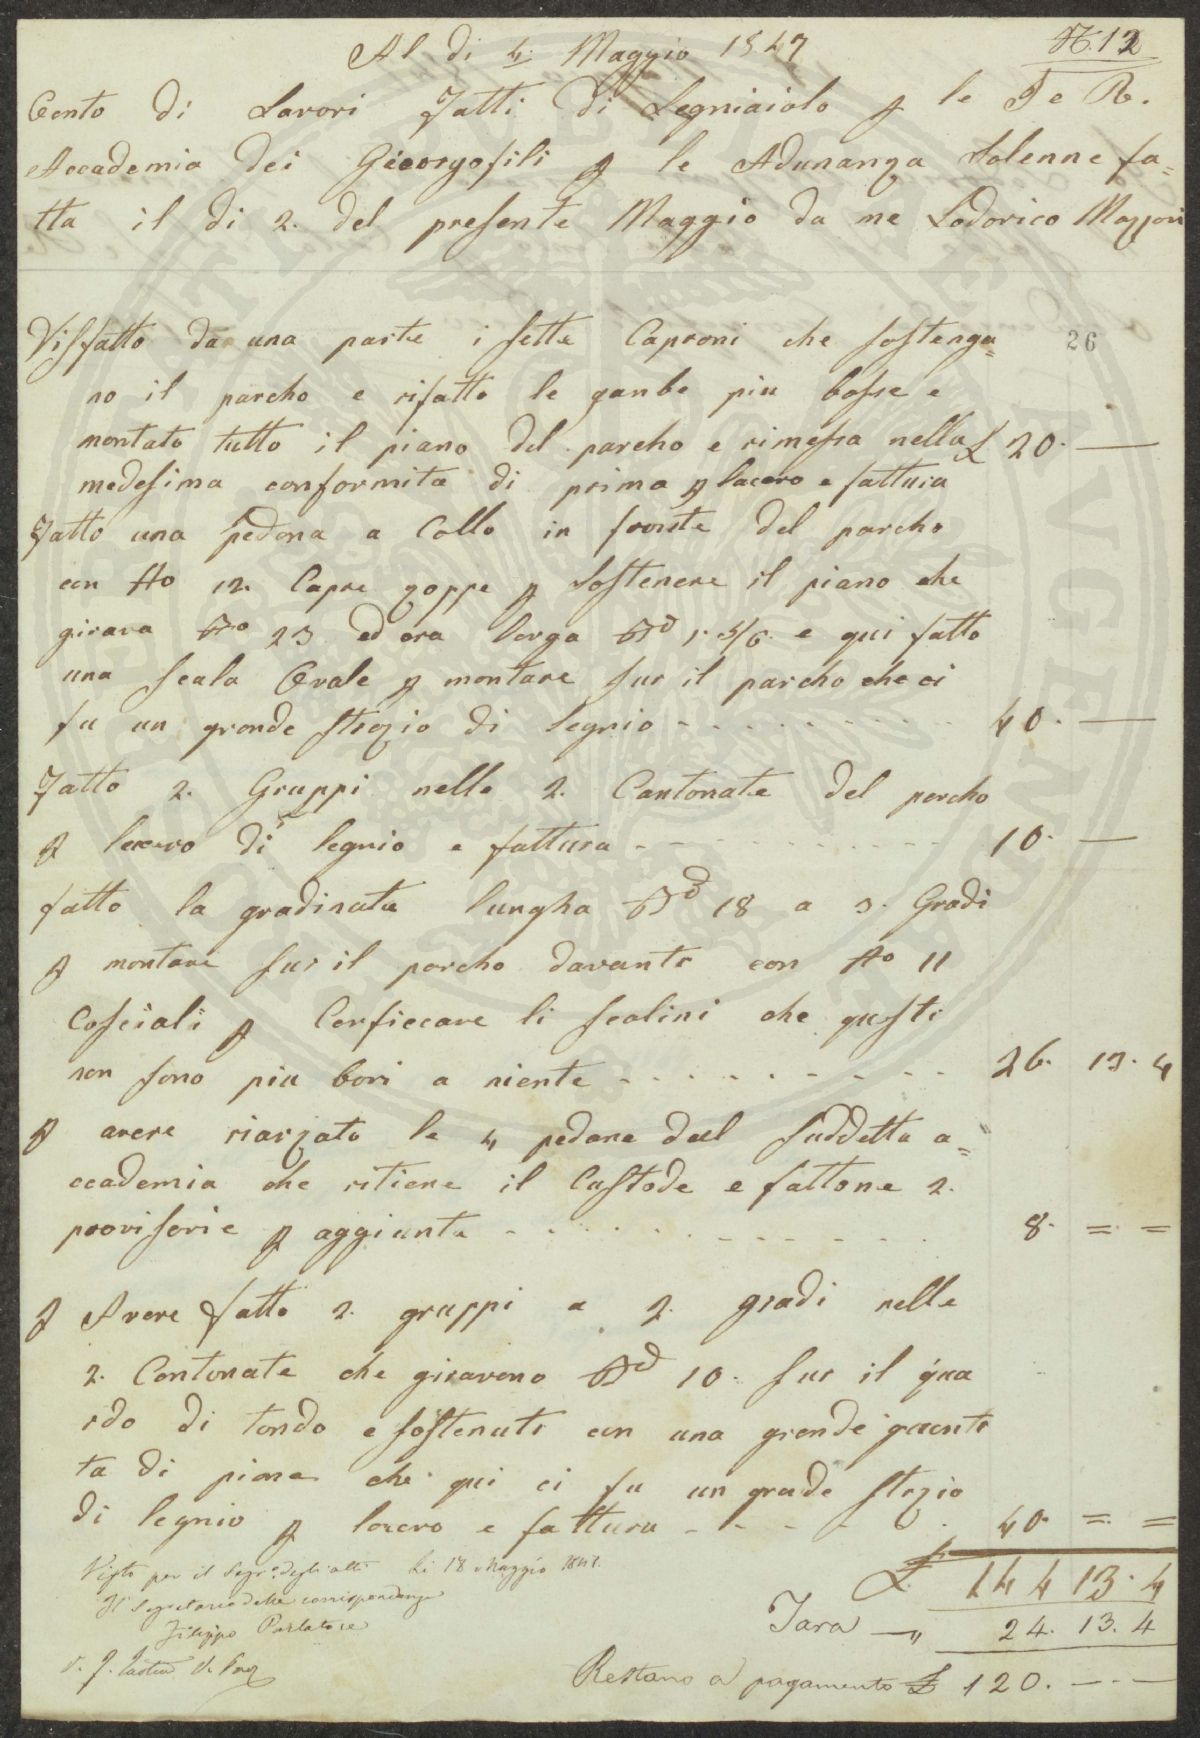 Al di 4. Maggio 1847
N. 12
Conto di Lavori Fatti di Legniaiolo p le I e R.
Accademia dei Gieorgofili p le Adunanza Solenne fa=
tta il di 2. del presente Maggio da me Lodovico Mazzoni
26
Disfatto da una parte i sette Caproni che sostenga=
no il parcho e rifatto le ganbe piu basse e
montato tutto il piano del parcho e rimessa nella £ 20. —
medesima conformita di prima p lavoro e fattura
Fatto una pedana a Collo in fronte del parcho
con No 12. Capre zoppe p Sostenere il piano che
girava 23 ed era larga 1. 5/6. e qui fatto
una Scala Ovale p montare sur il parcho che ci
fu un grande strazio di legnio - - - - - - - - - - 40. —
Fatto 2. Gruppi nelle 2. Cantonate del parcho
p lavoro di legnio e fattura - - - - - - - - - - 10. —
fatto la gradinata lungha 18 a 3. Gradi
p montare sur il parcho davanti con No 11
Cosciali p Conficcare li scalini che questi
non sono piu boni a niente - - - - - - - - - - 26. 13. 4
p avere riarzato le 4 pedane del suddetta a=
ccademia che ritiene il Custode e fattone 2.
provisorie p aggiunta - - - - - - - - - - 8. = =
p Avere fatto 2. gruppi a 2. gradi nelle
2. Contonate che giravono 10. sur il qua
rdo di tondo e sostenuti con una grande quanti
ta di piane che qui ci fu un grade strazio
di legnio p lavoro e fattura - - - - - - 40. = =
£. 144 13. 4
Visto per il Segr.o degli atti Li 18 Maggio 1847.
Il Segretario delle corrispondenze
Filippo Parlatore
Tara — „ 24. 13. 4
Restano a pagamento £ 120. — . —